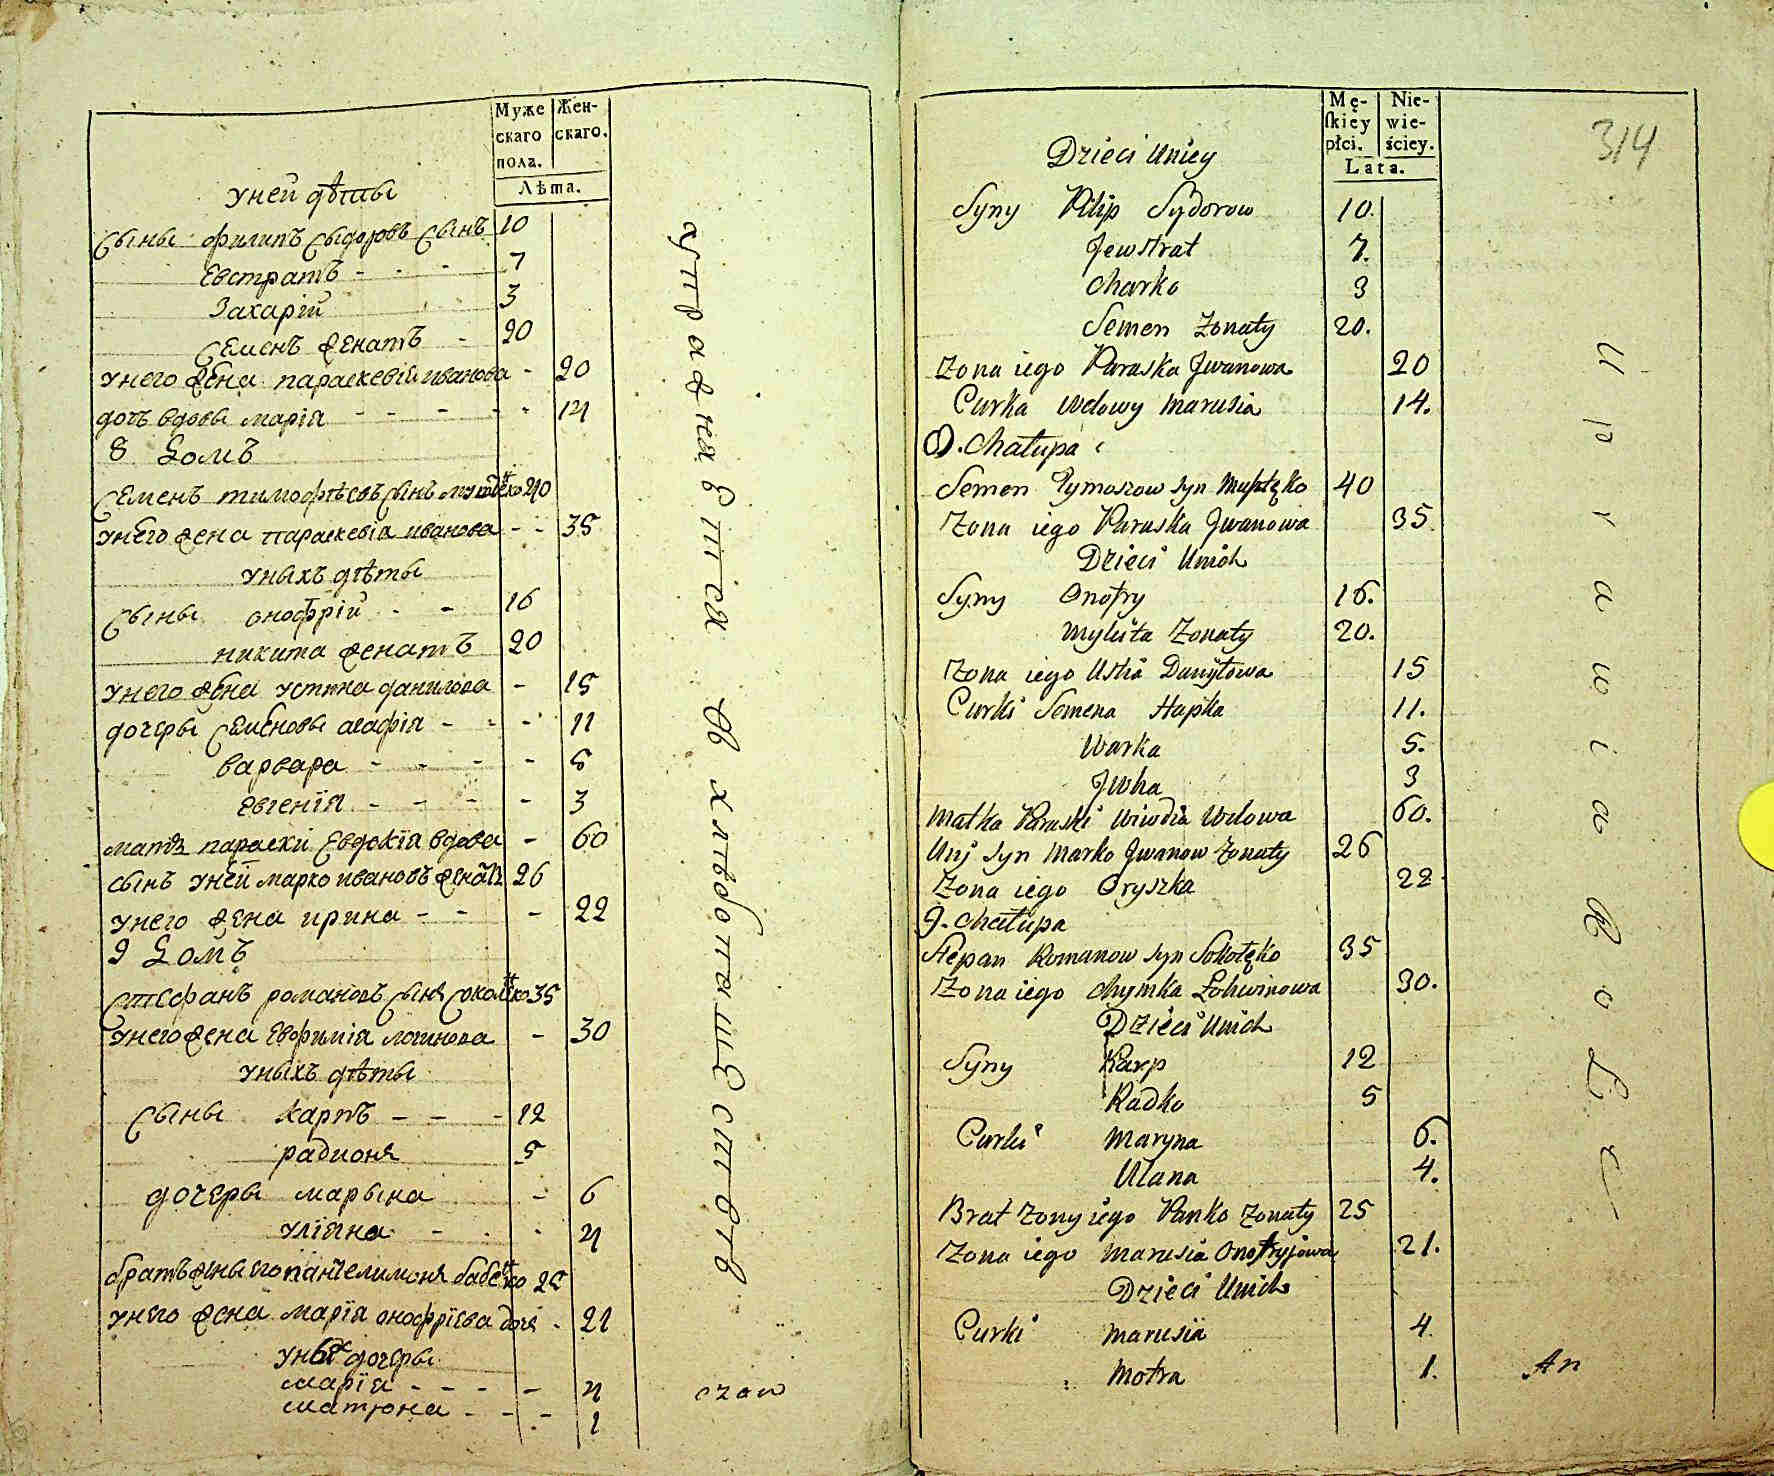 Муже
скаго
пола.
Жен-
скаго.
Лѣта.
уней дѣты
Сыны филипъ Сыдоровъ Сынъ 10
Евстратъ - - - 7
Захарій 3
Семенъ женатъ - 20
унего жена параскевія иванова - 20
дочъ вдовы марія - - - - - 14
8 Домъ
Семенъ тимофѣевъ Сынъ 40
унего жена параскевія иванова - - 35
уныхъ дѣты
Сыны онофрій - - 16
никита женатъ 20
унего жена устина данилова - 15
дочеры Семеновы агафія - - - 11
варвара - - - - 5
евгенія - - - - 3
матъ параски Евдокія вдова - 60
Сынъ уней марко ивановъ женатъ 26
унего жена ирина - - - 22
9 Домъ
Стефанъ романовъ Сынъ 35
унего жена Евфимія логинова - 30
уныхъ дѣты
Сыны карпъ - - - 12
радионъ 5
дочеры марына - 6
уліяна - - - 4
братъ жены его пантелимонъ 25
унего жена марія онофріева дочь - 21
уныхъ дочеры
марія - - - - 4
матрона - - - 1
упражняется въ хлѣбопашествѣ
czow
314
Mę-
skiey
płci.
Nie-
wie-
ściey.
Lata.
Dzieci Uniey
Syny Pilip Sydorow 10.
Jewstrat 7.
Charko 3
Semen Zonaty 20.
Zona iego Paraska Jwanowa 20
Curka Wdowy Marusia 14.
8. Chałupa
Semen Tymoszow syn 40
Zona iego Paraska Jwanowa 35
Dzieci Unich
Syny Onofry 16.
Mykita Zonaty 20.
Zona iego Ustia Daniłowa 15
Curki Semena Hapka 11.
Warka 5.
Jwha 3
Matka Paraski Wiwdia Wdowa 60.
Unij syn Marko Jwanow Zonaty 26
Zona iego Oryszka 22
9. Chałupa
Stepan Romanow syn Sokołęko 35
Zona iego Chymka Łohwinowa 30.
Dzieci Unich
Syny Karp 12
Radko 5
Curki Maryna 6.
Ulana 4.
Brat Zony iego Panko Zonaty 25
Zona iego Marusia Onofryjowa 21.
Dzieci Unich
Curki Marusia 4
Motra 1.
Uprawia Rolę
An